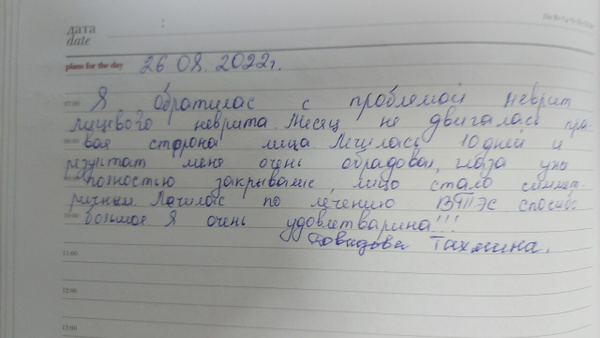 дата
date
plans for the day 26 08. 2022г.
Я обратилас с проблемой неврит
лицевого неврита. Месяц не двигалась пра-
вая сторона лица Лечилась 10 дней и
результат меня очень обрадовал, глаза уже
полностью закрывание, лицо стало симмет-
ричным. Лечилас по лечению ВТЭС спосибо
большое. Я очень удовлетварина!!!
Тахмина.
11:00
12:00
13:00